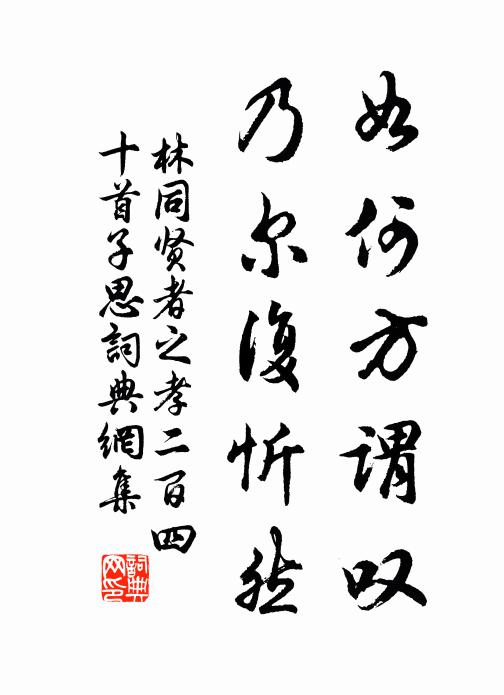 如何方谓叹
乃尔复忻然
林同贤者之孝二百四
十首子思詞典網集
詞典
网印